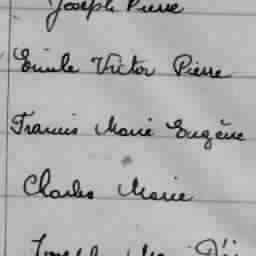 Joseph Pierre
Emile Victor Pierre
Francis Marie Eugène
Charles Marie
Joseph